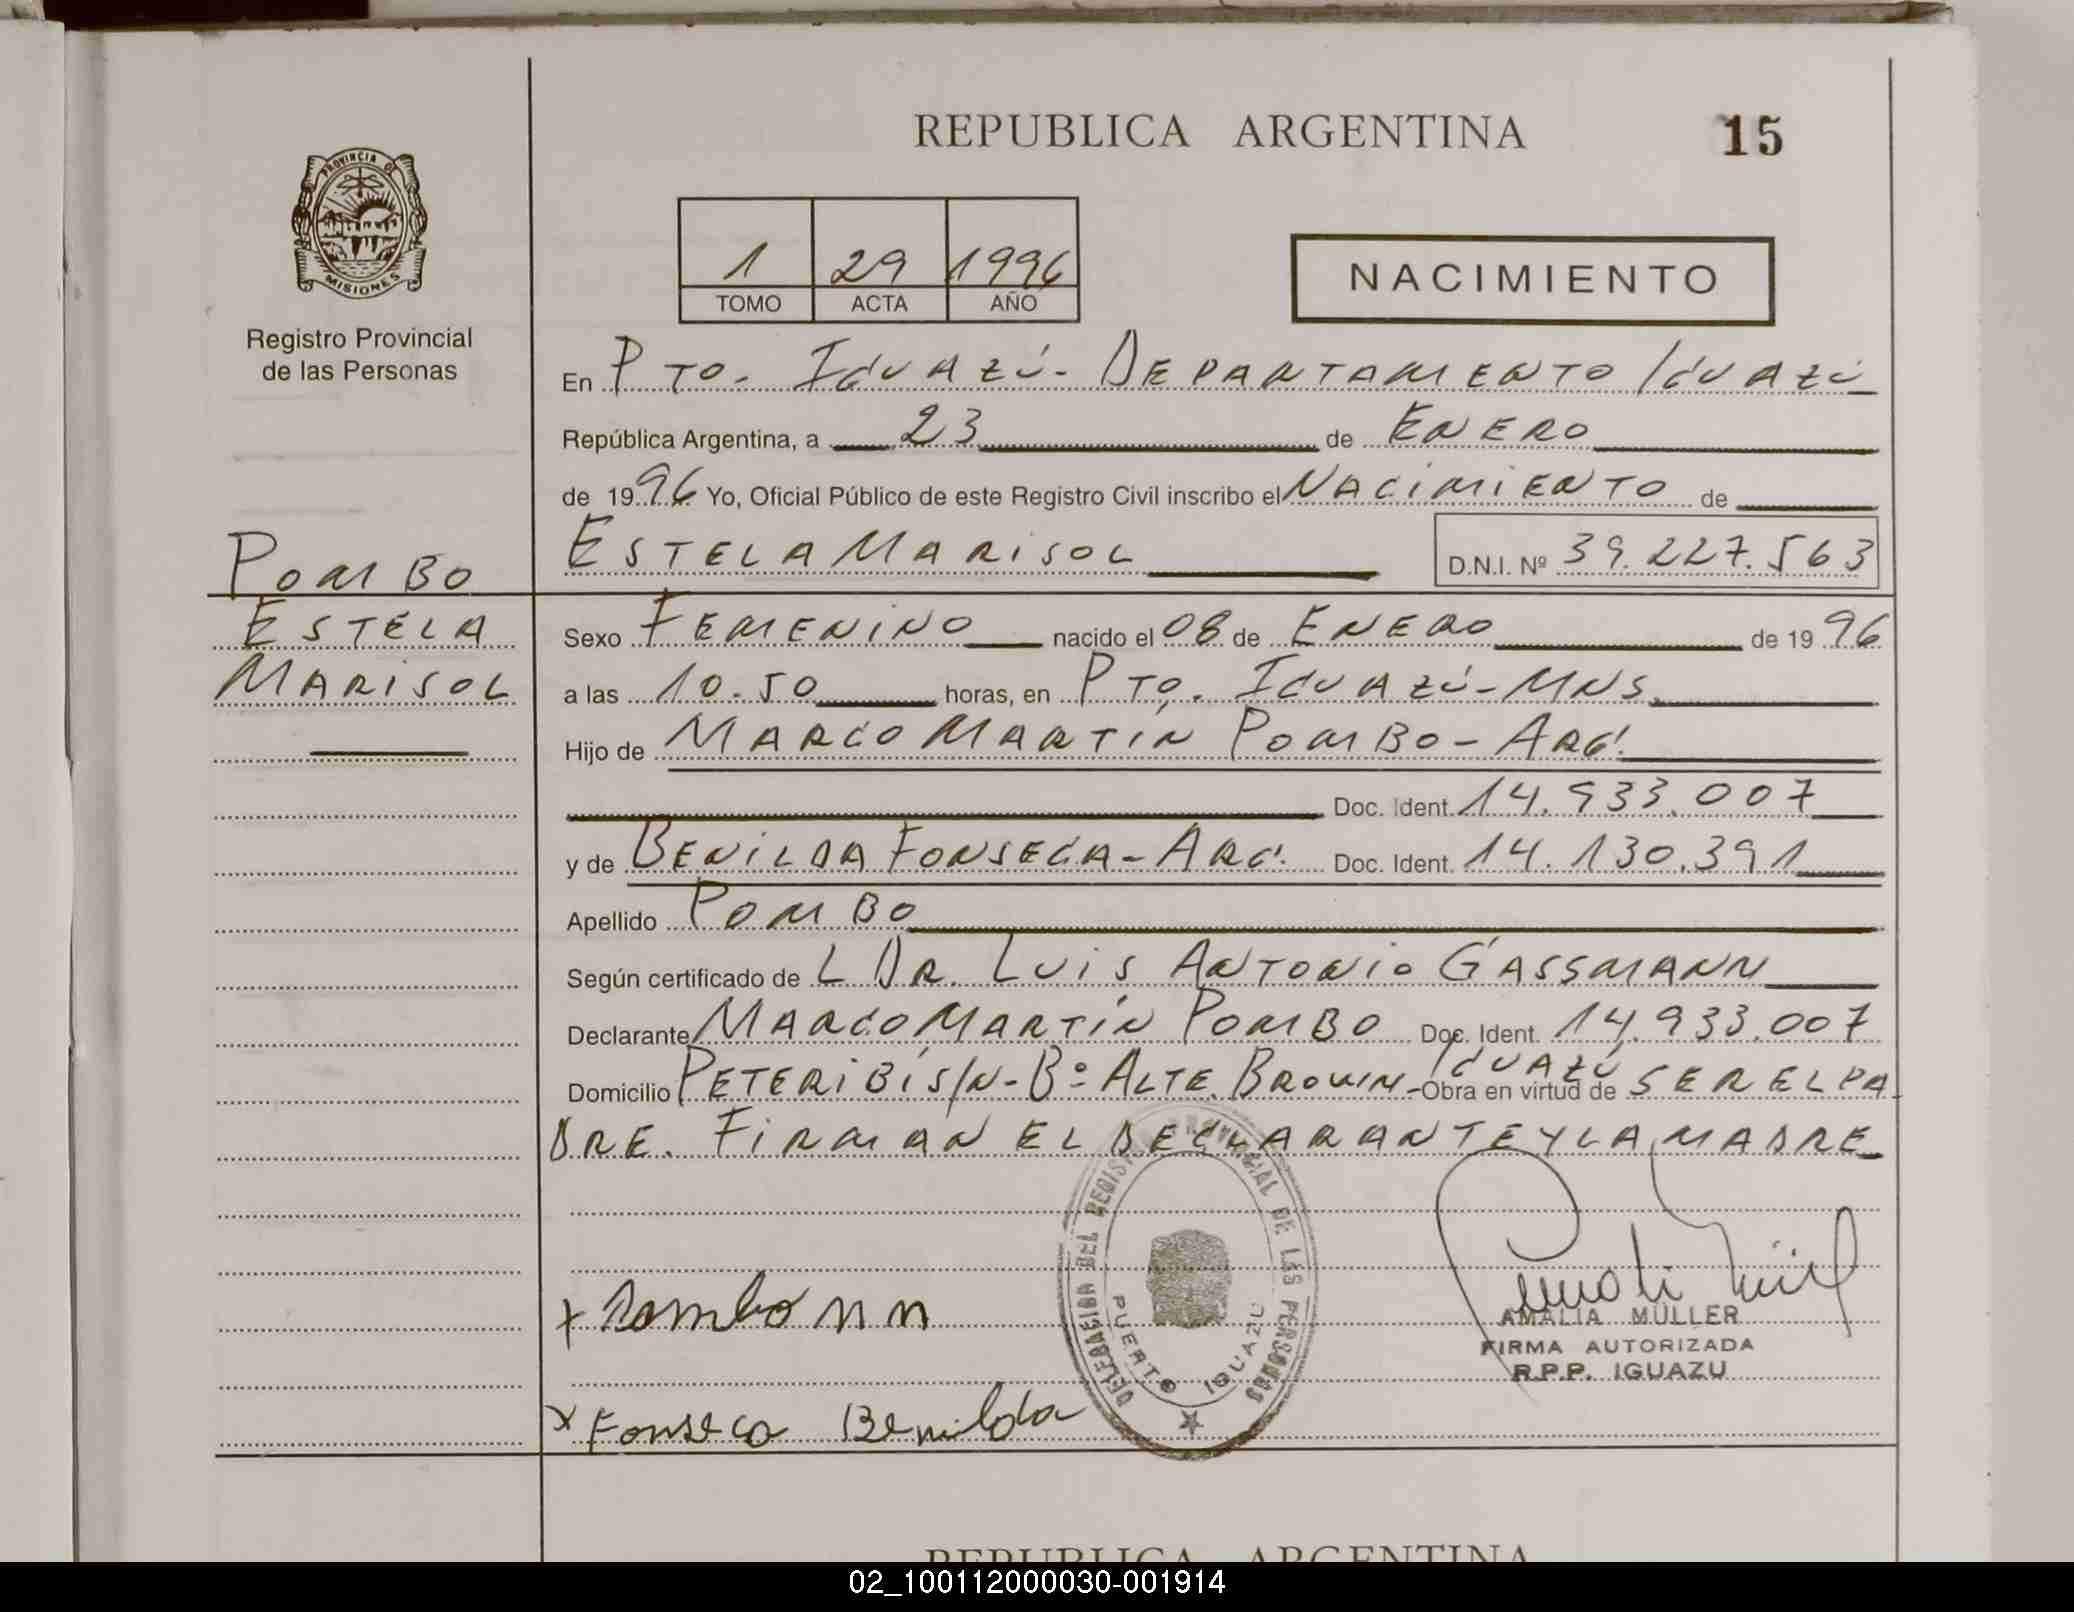 REPUBLICA ARGENTINA 15
PROVINCIA DE
MISIONES
Registro Provincial
de las Personas
1 29 1996
TOMO ACTA AÑO
NACIMIENTO
En PTO. IGUAZÚ - DEPARTAMENTO IGUAZÚ
República Argentina, a 23 de ENERO
de 1996 Yo, Oficial Público de este Registro Civil inscribo el NACIMIENTO de
POMBO
ESTELA MARISOL D.N.I. Nº 39.227.563
ESTELA
MARISOL
Sexo FEMENINO nacido el 08 de ENERO de 1996
a las 10.50 horas, en PTO. IGUAZÚ - MNS.
Hijo de MARCO MARTÍN POMBO - ARG.
Doc. Ident. 14.933.007
y de BENILDA FONSECA - ARG. Doc. Ident. 14.130.391
Apellido POMBO
Según certificado de L DR. LUIS ANTONIO GASSMANN
Declarante MARCO MARTÍN POMBO Doc. Ident. 14.933.007
Domicilio PETERIBÍ S/N - Bº ALTE. BROWN - IGUAZÚ Obra en virtud de SER EL PA
DRE. FIRMAN EL DECLARANTE Y LA MADRE
DELEGACION DEL REGISTRO PROVINCIAL DE LAS PERSONAS
PUERTO IGUAZU
x Pombo M M
AMALIA MÜLLER
FIRMA AUTORIZADA
R.P.P. IGUAZU
x Fonseca Benilda
REPUBLICA ARGENTINA
02_100112000030-001914